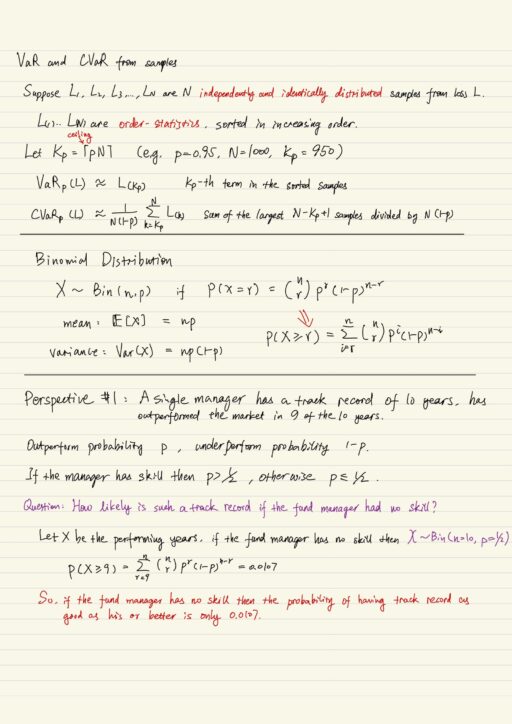 VaR and CVaR from samples
Suppose L₁, L₂, L₃,..., L_N are N independently and identically distributed samples from loss L.
L₍₁₎... L₍N₎ are order-statistics, sorted in increasing order.
ceiling
Let K_p = ⌈pN⌉ (e.g. p=0.95, N=1000, K_p = 950)
VaR_p(L) ≈ L(K_p) K_p-th term in the sorted samples
CVaR_p(L) ≈ 1/N(1-p) Σ_{k=K_p}^{N} L(k) sum of the largest N-K_p+1 samples divided by N(1-p)
Binomial Distribution
X ~ Bin(n,p) if P(X=r) = (n r) p^r (1-p)^{n-r}
mean: E[X] = np
P(X≥r) = Σ_{i=r}^{n} (n r) p^i (1-p)^{n-i}
variance: Var(X) = np(1-p)
Perspective #1: A single manager has a track record of 10 years, has
outperformed the market in 9 of the 10 years.
Outperform probability p, underperform probability 1-p.
If the manager has skill then p>1/2, otherwise p≤1/2.
Question: How likely is such a track record if the fund manager had no skill?
Let X be the performing years, if the fund manager has no skill then X~Bin(n=10, p=1/2)
P(X≥9) = Σ_{r=9}^{n} (n r) p^r (1-p)^{n-r} = 0.0107
So, if the fund manager has no skill then the probability of having track record as
good as his or better is only 0.0107.